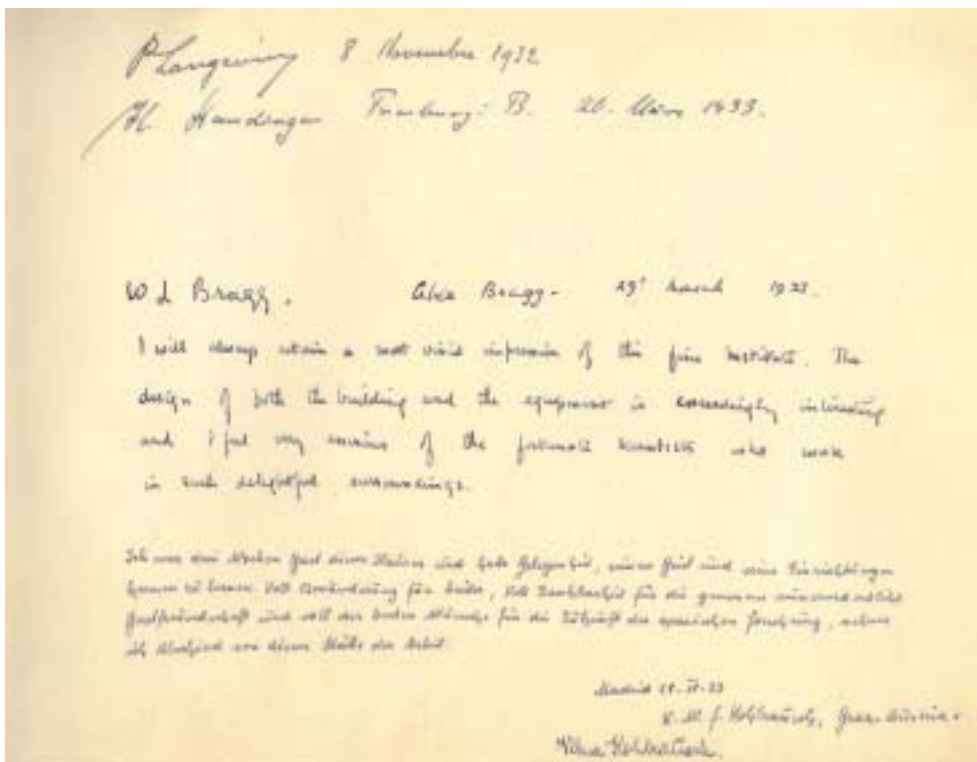 P Langevin 8 Novembre 1932
26. März 1933.
W L Bragg. Alice Bragg - 29th March 1933.
I will always retain a most vivid impression of this fine institute. The
design of both the building and the equipment is exceedingly interesting
and I feel very envious of the fortunate scientists who work
in such delightful surroundings.
Ich war drei Wochen Gast dieses Hauses und hatte Gelegenheit, seinen Geist und seine Einrichtungen
kennen zu lernen. Voll Bewunderung für beides, voll Dankbarkeit für die genossene
Gastfreundschaft und voll der besten Wünsche für die Zukunft der spanischen Forschung, nehme
ich Abschied von dieser Stätte der Arbeit.
Madrid
K. W. F. Kohlrausch, Graz-Austria.
Kohlrausch.